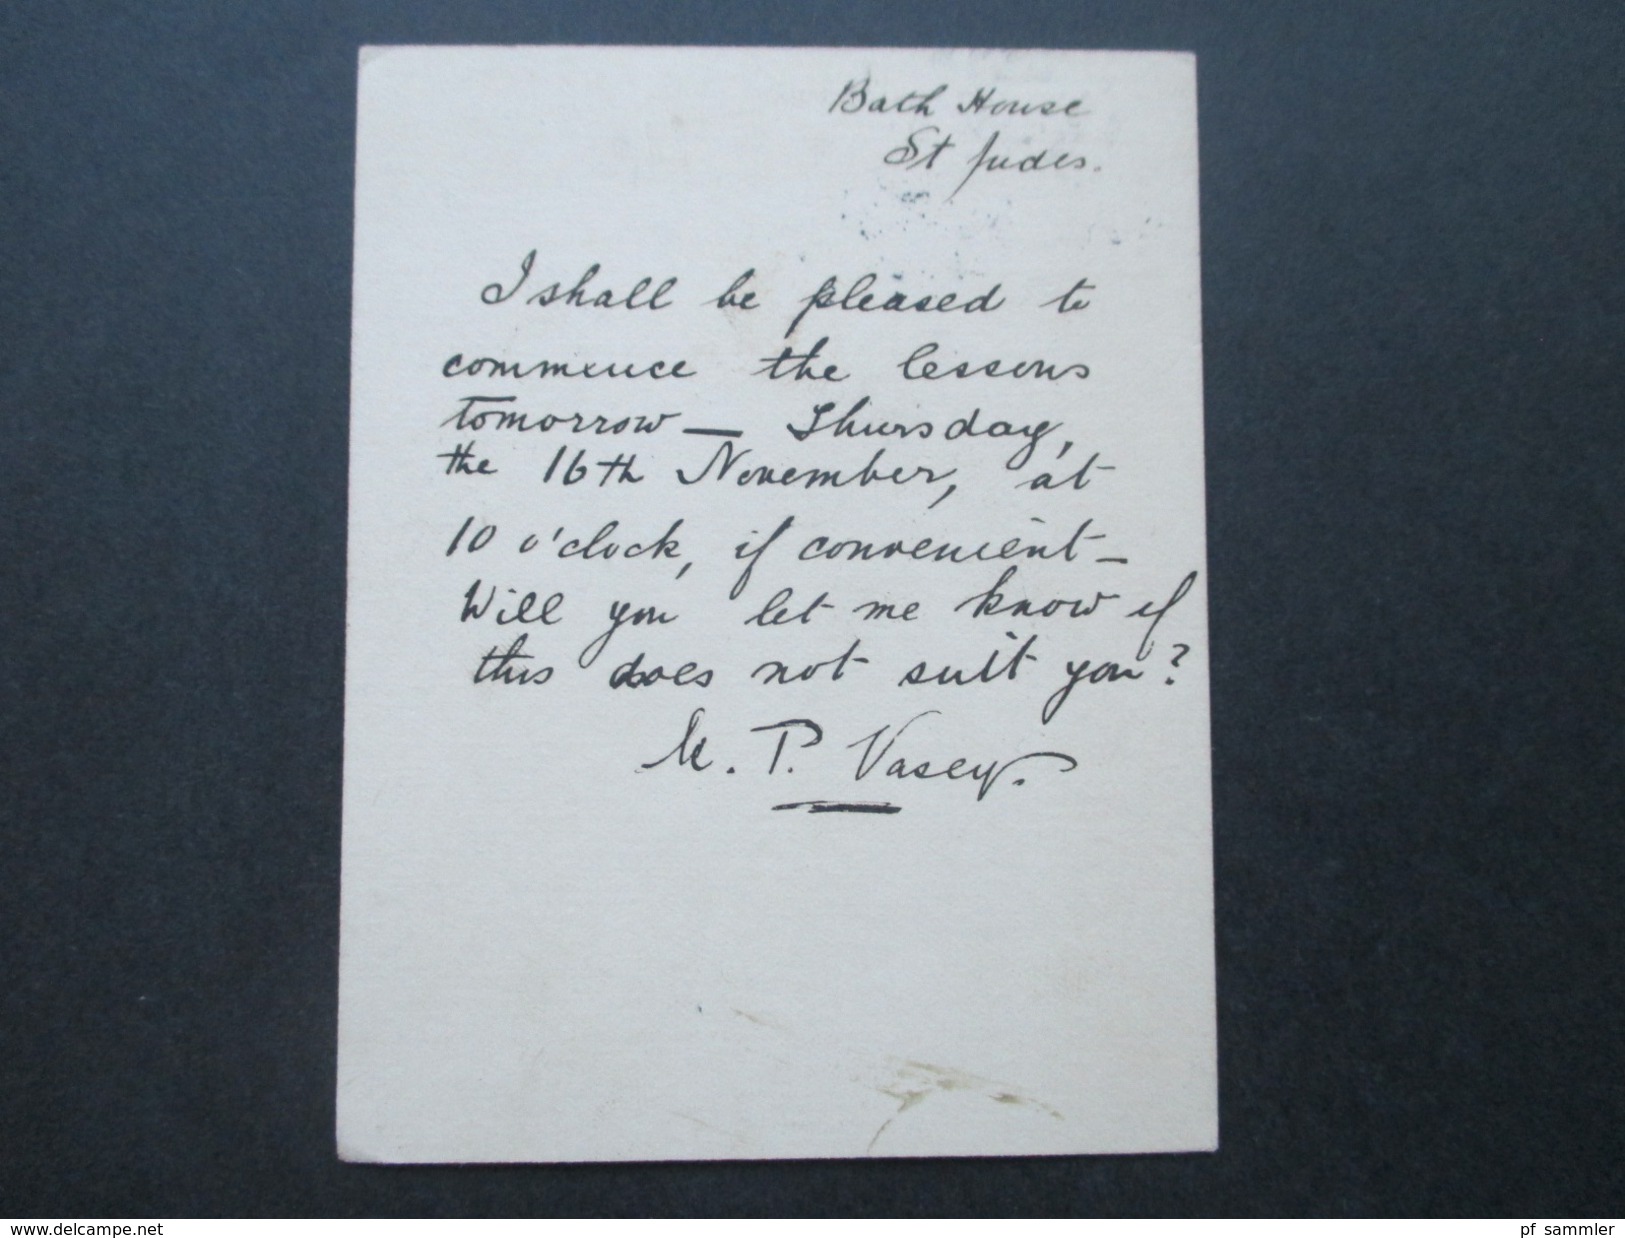 Bath House
St Judes.
I shall be pleased to
commence the lessons
tomorrow — Thursday,
the 16th November, at
10 o'clock, if convenient —
Will you let me know if
this does not suit you?
M. P. Vasey.
www.delcampe.net
pf_sammler